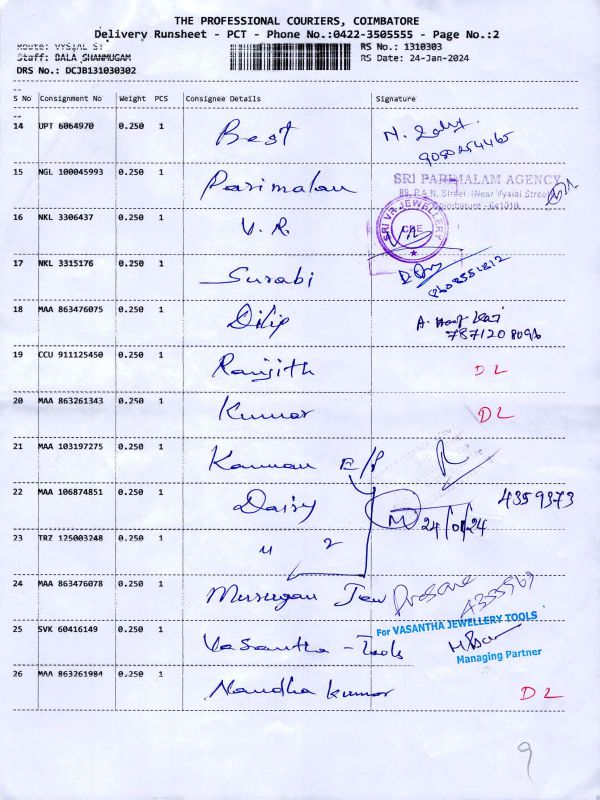 THE PROFESSIONAL COURIERS, COIMBATORE
Delivery Runsheet - PCT - Phone No.:0422-3505555 - Page No.:2
Route: VYSIAL ST RS No.: 1310303
Staff: BALA SHANMUGAM RS Date: 24-Jan-2024
DRS No.: DCJB131030302
S No Consignment No Weight PCS Consignee Details Signature
14 UPT 6064970 0.250 1 Best
9080254465
15 NGL 100045993 0.250 1 Parimalam SRI PARIMALAM AGENCY
89, P.A.N. Street (Near Vysial Street)
Coimbatore - 641019
16 NKL 3306437 0.250 1 V. R. SRI VR JEWELLERY CBE
17 NKL 3315176 0.250 1 Surabi
18 MAA 863476075 0.250 1 Dilip
7871208096
19 CCU 911125450 0.250 1 Ranjith D L
20 MAA 863261343 0.250 1 Kumar D L
21 MAA 103197275 0.250 1 Kannan E/P
22 MAA 106874851 0.250 1 Daisy M 24/01/24 4359373
23 TRZ 125003248 0.250 1 u 2
24 MAA 863476078 0.250 1 Murugan Jew
25 SVK 60416149 0.250 1 Vasantha - Tools For VASANTHA JEWELLERY TOOLS
Managing Partner
26 MAA 863261984 0.250 1 Nandha kumar D L
9